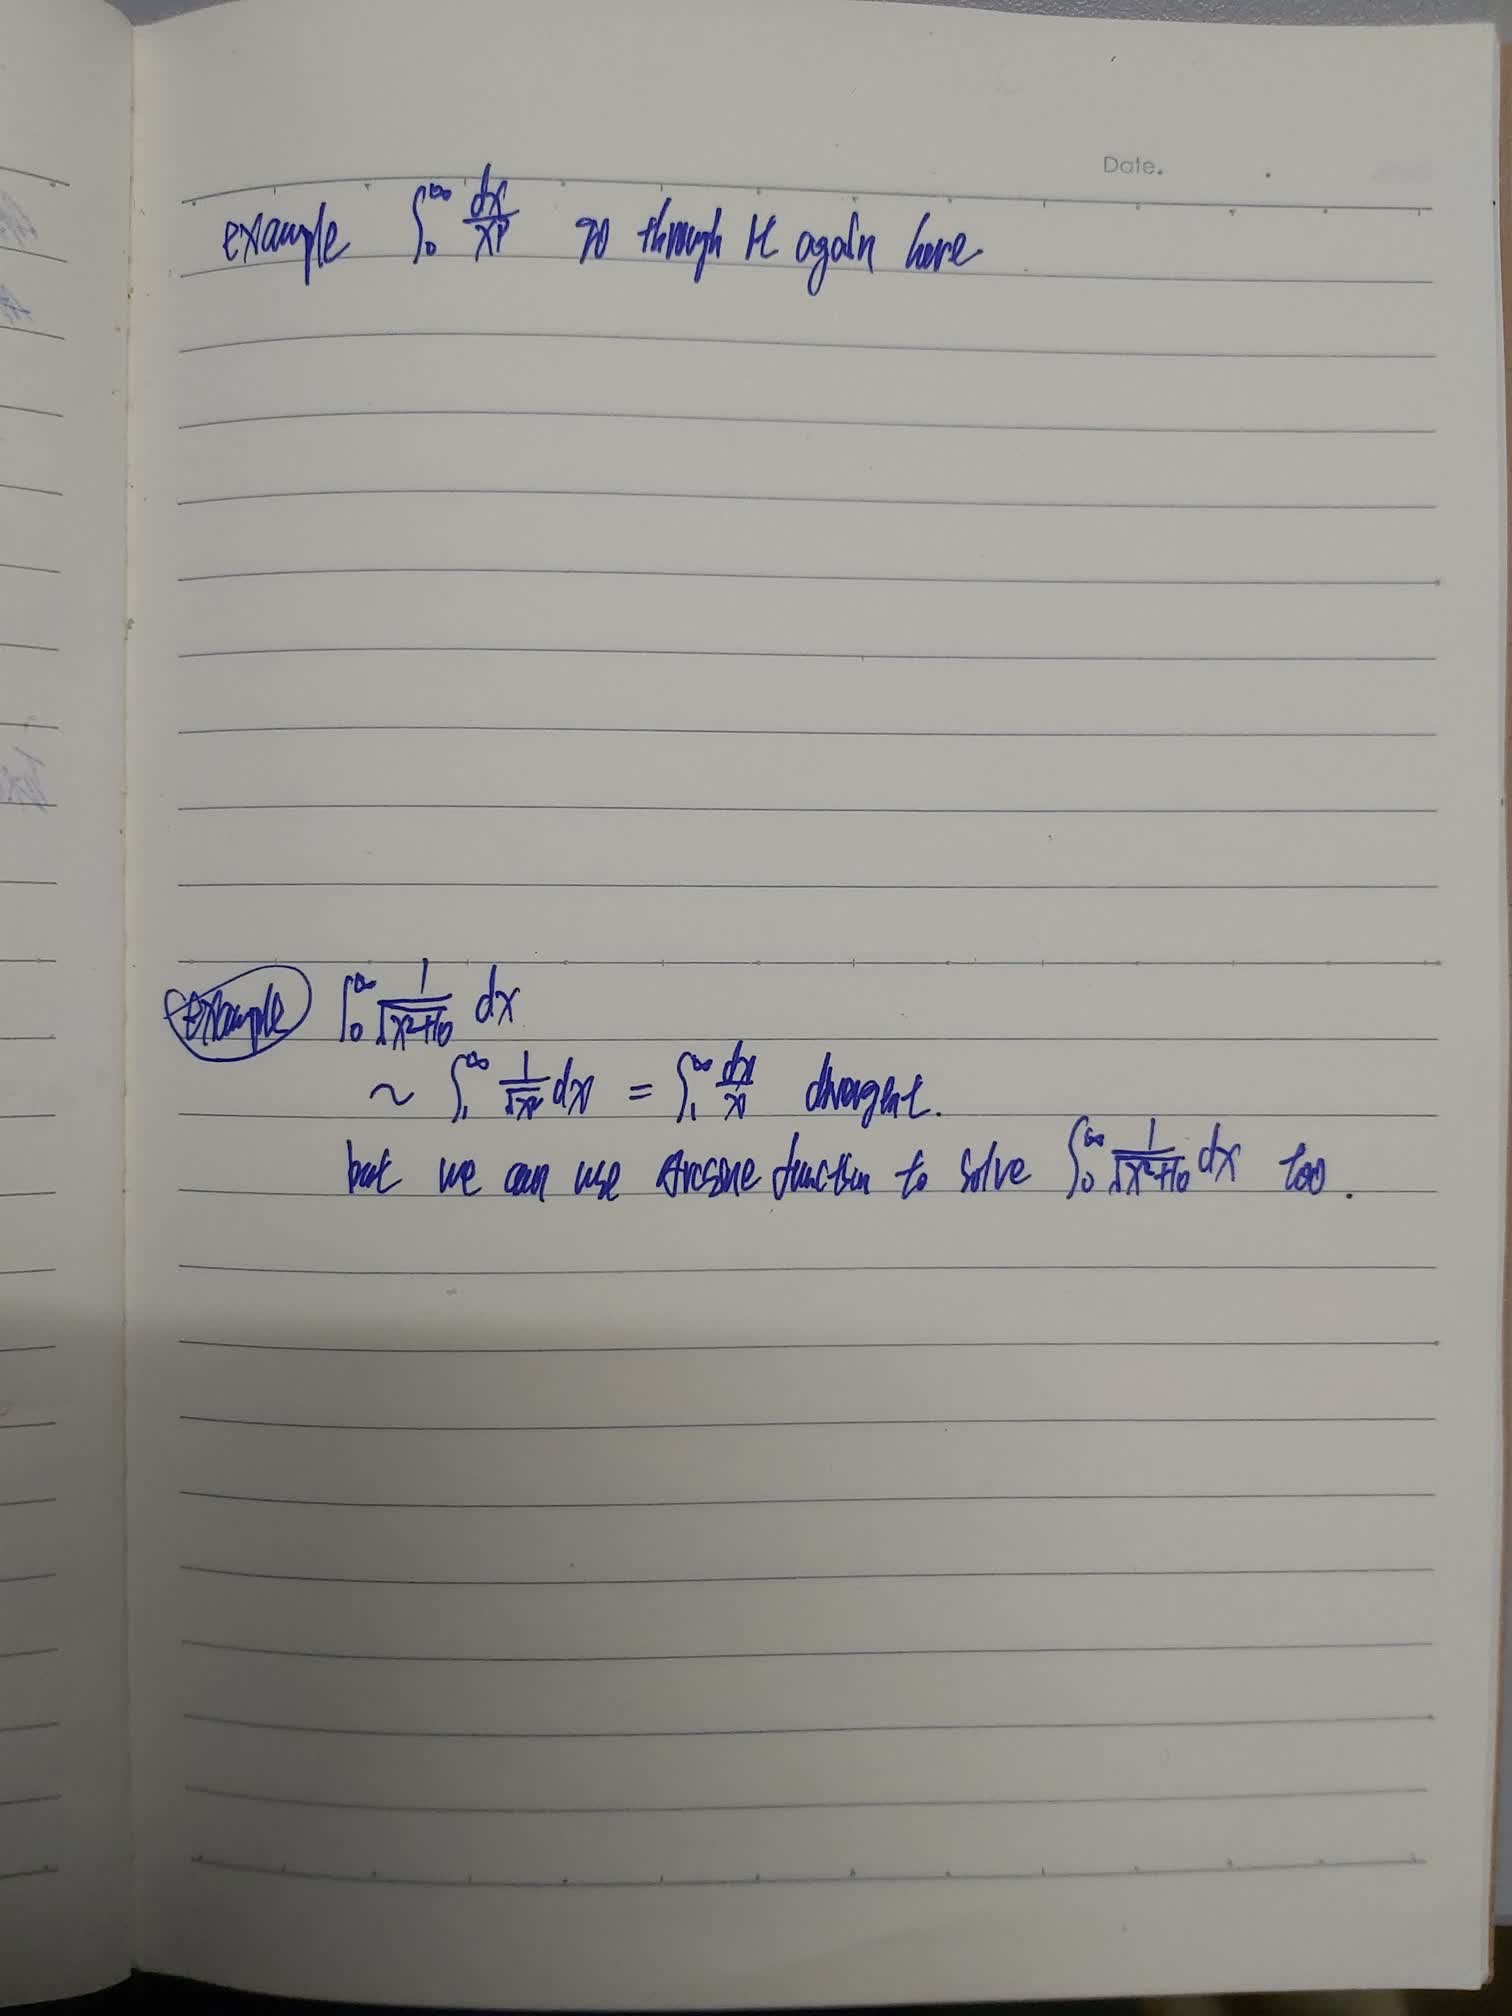 Date.
example ∫₀^∞ dx/x^p go through it again here.
example ∫₀^∞ 1/√(x²+10) dx
~ ∫₁^∞ 1/√x² dx = ∫₁^∞ dx/x divergent.
but we can use function to solve ∫₀^∞ 1/√(x²+10) dx too.